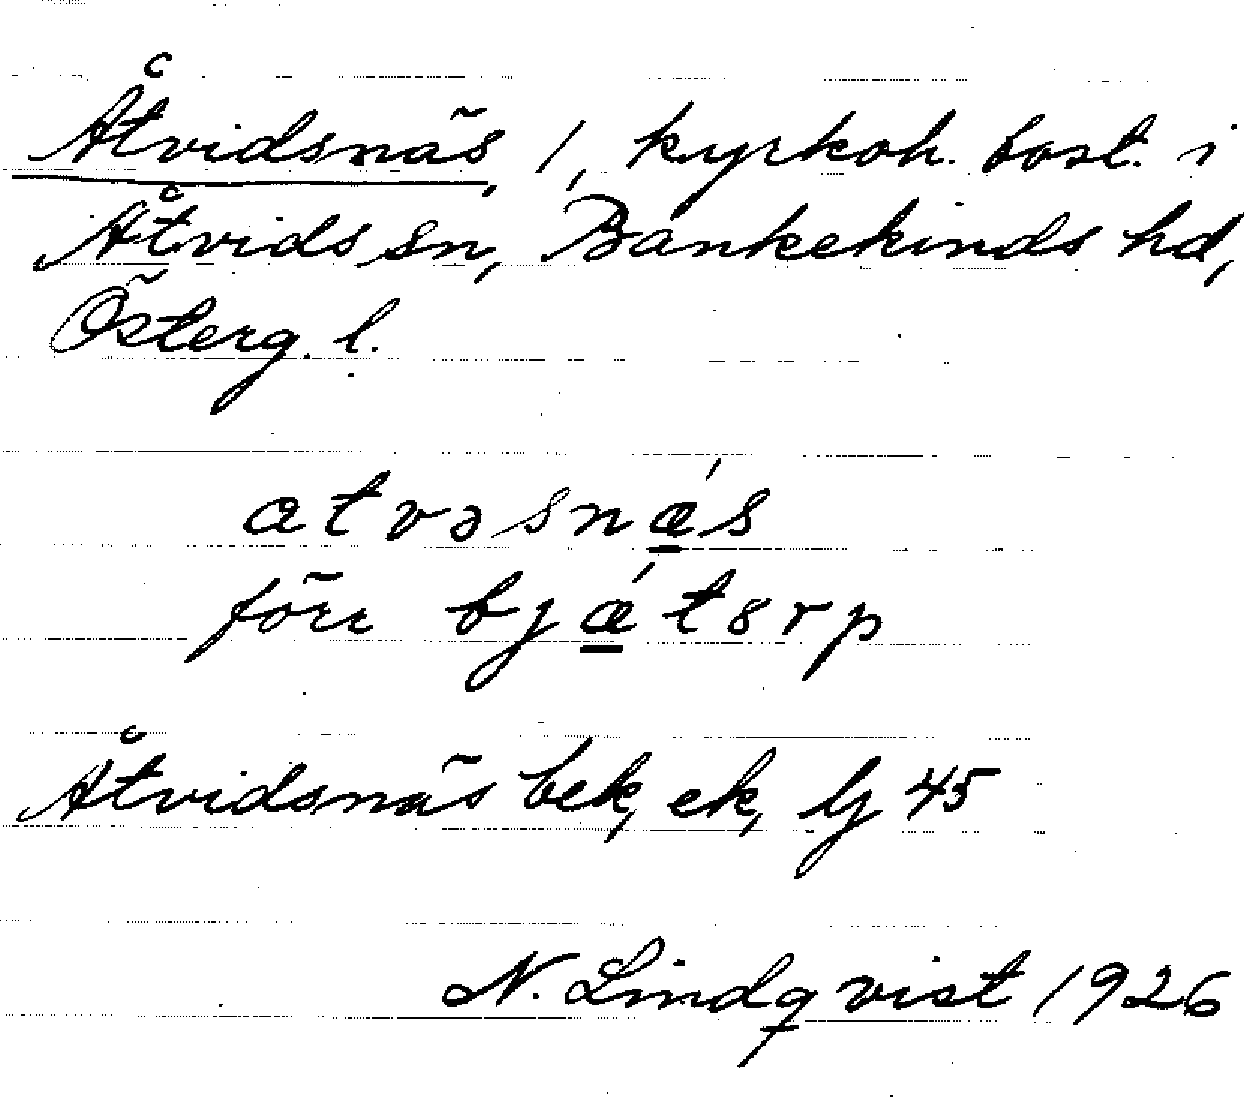 Åtvidsnäs, 1, kyrkoh. bost. i
Åtvids sn, Bankekinds hd,
Österg. l.
atvəsnǽs
förr bjǽtsrp
Åtvidsnäs bek, ek, lj 45
N. Lindqvist 1926